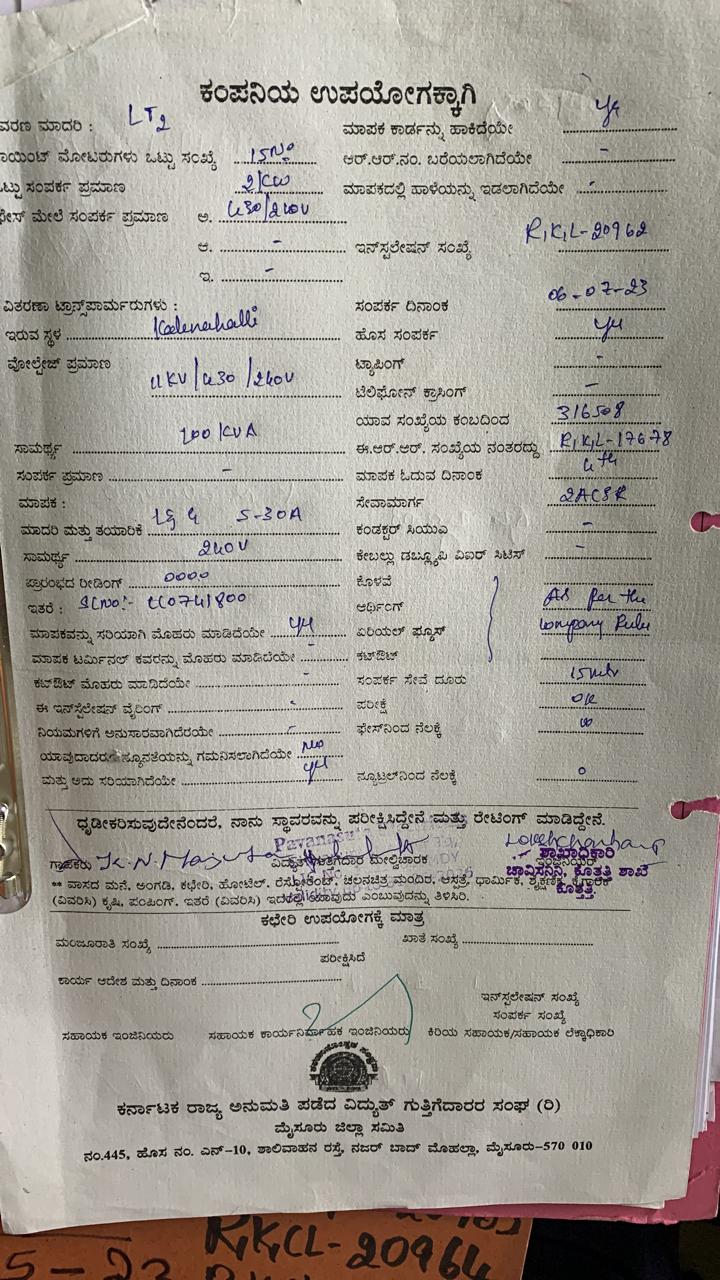 ಕಂಪನಿಯ ಉಪಯೋಗಕ್ಕಾಗಿ
ವರಣ ಮಾದರಿ : LT2 ಮಾಪಕ ಕಾರ್ಡನ್ನು ಹಾಕಿದೆಯೇ
ಾಯಿಂಟ್ ಮೋಟರುಗಳು ಒಟ್ಟು ಸಂಖ್ಯೆ 15No ಆರ್.ಆರ್.ನಂ. ಬರೆಯಲಾಗಿದೆಯೇ -
ಟ್ಟು ಸಂಪರ್ಕ ಪ್ರಮಾಣ ಮಾಪಕದಲ್ಲಿ ಹಾಳೆಯನ್ನು ಇಡಲಾಗಿದೆಯೇ -
ಫೇಸ್ ಮೇಲೆ ಸಂಪರ್ಕ ಪ್ರಮಾಣ ಅ. 430/240V
ಆ. - ಇನ್‌ಸ್ಟಲೇಷನ್ ಸಂಖ್ಯೆ R,K,L-20962
ಇ. -
ವಿತರಣಾ ಟ್ರಾನ್ಸ್‌ಪಾರ್ಮರುಗಳು : ಸಂಪರ್ಕ ದಿನಾಂಕ 06-07-23
ಇರುವ ಸ್ಥಳ Kadenahalli ಹೊಸ ಸಂಪರ್ಕ yes
ವೋಲ್ಟೇಜ್ ಪ್ರಮಾಣ 11KV/430/240V ಟ್ಯಾಪಿಂಗ್ -
ಟೆಲಿಫೋನ್ ಕ್ರಾಸಿಂಗ್ -
ಯಾವ ಸಂಖ್ಯೆಯ ಕಂಬದಿಂದ 316508
ಸಾಮರ್ಥ್ಯ 100 KVA ಈ.ಆರ್.ಆರ್. ಸಂಖ್ಯೆಯ ನಂತರದ್ದು R,K,L-17678
ಸಂಪರ್ಕ ಪ್ರಮಾಣ - ಮಾಪಕ ಓದುವ ದಿನಾಂಕ 4th
ಮಾಪಕ : ಸೇವಾಮಾರ್ಗ 2ACSR
ಮಾದರಿ ಮತ್ತು ತಯಾರಿಕೆ 5-30A ಕಂಡಕ್ಟರ್ ಸಿಯುಎ -
ಸಾಮರ್ಥ್ಯ 240V ಕೇಬಲ್ಲು ಡಬ್ಲ್ಯೂಪಿ ವಿಐರ್ ಸಿಟಿಸ್ -
ಪ್ರಾರಂಭದ ರೀಡಿಂಗ್ 0000 ಕೊಳವೆ
ಇತರೆ : SlNo:- CC0741800 ಆರ್ಥಿಂಗ್ As per the
ಮಾಪಕವನ್ನು ಸರಿಯಾಗಿ ಮೊಹರು ಮಾಡಿದೆಯೇ yes ಏರಿಯಲ್ ಫ್ಯೂಸ್ Company Rules
ಮಾಪಕ ಟರ್ಮಿನಲ್ ಕವರನ್ನು ಮೊಹರು ಮಾಡಿದೆಯೇ - ಕಟ್‌ಔಟ್
ಕಟ್‌ಔಟ್ ಮೊಹರು ಮಾಡಿದೆಯೇ - ಸಂಪರ್ಕ ಸೇವೆ ದೂರು 15mtr
ಈ ಇನ್‌ಸ್ಟಲೇಷನ್ ವೈರಿಂಗ್ - ಪರೀಕ್ಷೆ OK
ನಿಯಮಗಳಿಗೆ ಅನುಸಾರವಾಗಿದೆರಯೇ - ಫೇಸ್‌ನಿಂದ ನೆಲಕ್ಕೆ
ಯಾವುದಾದರೂ ನ್ಯೂನತೆಯನ್ನು ಗಮನಿಸಲಾಗಿದೆಯೇ No
ಮತ್ತು ಅದು ಸರಿಯಾಗಿದೆಯೇ yes ನ್ಯೂಟ್ರಲ್‌ನಿಂದ ನೆಲಕ್ಕೆ 0
ಧೃಡೀಕರಿಸುವುದೇನೆಂದರೆ, ನಾನು ಸ್ಥಾವರವನ್ನು ಪರೀಕ್ಷಿಸಿದ್ದೇನೆ ಮತ್ತು ರೇಟಿಂಗ್ ಮಾಡಿದ್ದೇನೆ.
ಗ್ರಾಹಕರು ವಿದ್ಯುತ್ ಗುತ್ತಿಗೆದಾರ ಮೇಲ್ವಿಚಾರಕ ಇಂಜಿನಿಯರ್
ಶಾಖಾಧಿಕಾರಿ
ಚಾವಿಸನಿನಿ, ಕೊತ್ತತ್ತಿ ಶಾಖೆ
ಕೊತ್ತತ್ತಿ.
** ವಾಸದ ಮನೆ, ಅಂಗಡಿ, ಕಛೇರಿ, ಹೋಟೆಲ್. ರೆಸ್ಟೋರೆಂಟ್, ಚಲನಚಿತ್ರ ಮಂದಿರ, ಆಸ್ಪತ್ರೆ, ಧಾರ್ಮಿಕ, ಶೈಕ್ಷಣಿಕ, ಕೈಗಾರಿಕೆ
(ವಿವರಿಸಿ) ಕೃಷಿ, ಪಂಪಿಂಗ್. ಇತರೆ (ವಿವರಿಸಿ) ಇದರಲ್ಲಿ ಯಾವುದು ಎಂಬುವುದನ್ನು ತಿಳಿಸಿರಿ.
ಕಛೇರಿ ಉಪಯೋಗಕ್ಕೆ ಮಾತ್ರ
ಮಂಜೂರಾತಿ ಸಂಖ್ಯೆ ಖಾತೆ ಸಂಖ್ಯೆ
ಪರೀಕ್ಷಿಸಿದೆ
ಕಾರ್ಯ ಆದೇಶ ಮತ್ತು ದಿನಾಂಕ
ಇನ್‌ಸ್ಟಲೇಷನ್ ಸಂಖ್ಯೆ
ಸಂಪರ್ಕ ಸಂಖ್ಯೆ
ಸಹಾಯಕ ಇಂಜಿನಿಯರು ಸಹಾಯಕ ಕಾರ್ಯನಿರ್ವಾಹಕ ಇಂಜಿನಿಯರು ಕಿರಿಯ ಸಹಾಯಕ/ಸಹಾಯಕ ಲೆಕ್ಕಾಧಿಕಾರಿ
ಕರ್ನಾಟಕ ರಾಜ್ಯ ಅನುಮತಿ ಪಡೆದ ವಿದ್ಯುತ್ ಗುತ್ತಿಗೆದಾರರ ಸಂಘ (ರಿ)
ಮೈಸೂರು ಜಿಲ್ಲಾ ಸಮಿತಿ
ನಂ.445, ಹೊಸ ನಂ. ಎನ್-10, ಶಾಲಿವಾಹನ ರಸ್ತೆ, ನಜರ್ ಬಾದ್ ಮೊಹಲ್ಲಾ, ಮೈಸೂರು-570 010
5-23 R,K,CL-20964